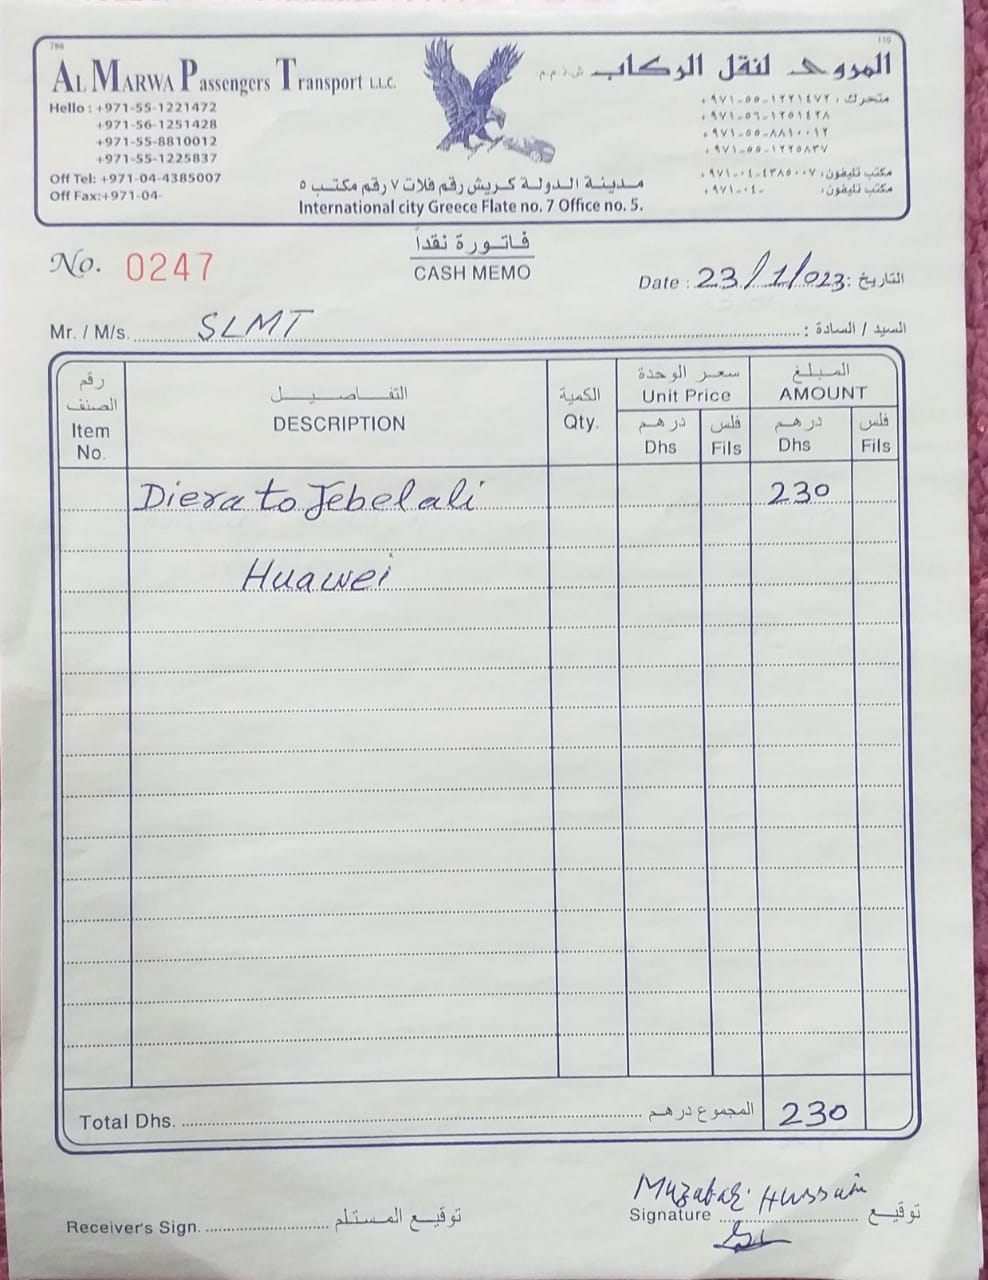 786
110
AL MARWA PASSENGERS TRANSPORT L.L.C.
المروى لنقل الركاب ش.ذ.م.م
Hello : +971-55-1221472
+971-56-1251428
+971-55-8810012
+971-55-1225837
Off Tel: +971-04-4385007
Off Fax:+971-04-
متحرك : ٠٩٧١-٥٥-١٢٢١٤٧٢
٠٩٧١-٥٦-١٢٥١٤٢٨
٠٩٧١-٥٥-٨٨١٠٠١٢
٠٩٧١-٥٥-١٢٢٥٨٣٧
مكتب تليفون: ٠٩٧١-٠٤-٤٣٨٥٠٠٧
مكتب تليفون: ٠٩٧١-٠٤-
مدينة الدولة كريش رقم فلات ٧ رقم مكتب ٥
International city Greece Flate no. 7 Office no. 5.
No. 0247
فاتورة نقداً
CASH MEMO
Date : 23/1/023 : التاريخ
Mr. / M/s. SLMT السيد / السادة :
رقم الصنف
Item No.
التفاصيل
DESCRIPTION
الكمية
Qty.
سعر الوحدة
Unit Price
المبلغ
AMOUNT
درهم فلس درهم فلس
Dhs Fils Dhs Fils
Diera to Jebel ali 230
Huawei
Total Dhs. المجموع درهم 230
Hussain
Receiver's Sign. توقيع المستلم
Signature توقيع